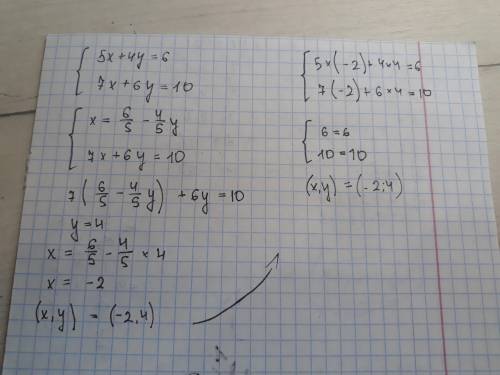 5x+4y=6
7x+6y=10
x = 6/5 - 4/5 y
7x+6y=10
7(6/5 - 4/5 y) +6y=10
y=4
x = 6/5 - 4/5 × 4
x = -2
(x,y) = (-2,4)
5×(-2)+4×4=6
7(-2)+6×4=10
6=6
10=10
(x,y) = (-2;4)